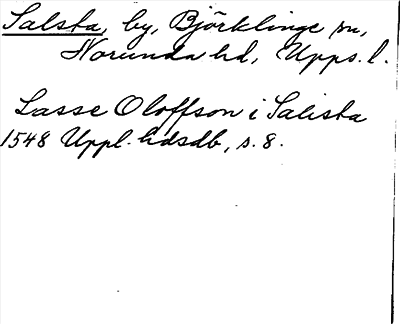 Salsta, by, Björklinge sn,
Norunda hd, Upps. l.
Lasse Oloffson i Salista
1548 Uppl. hdsdb, s. 8.